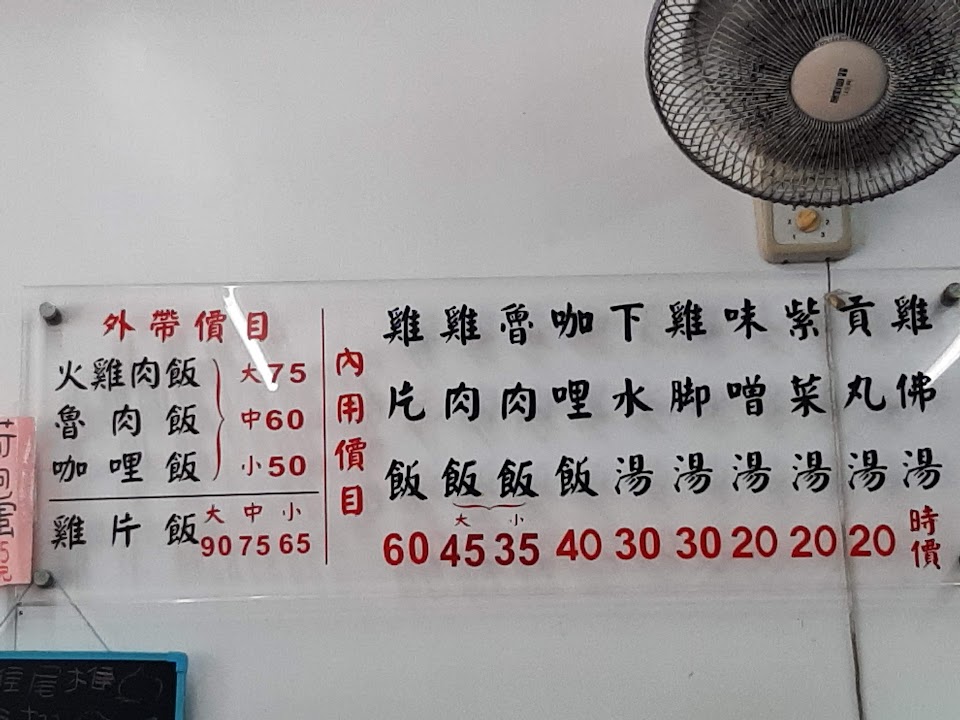 外帶價目
火雞肉飯
魯肉飯
咖哩飯
大75
中60
小50
雞片飯
大 中 小
90 75 65
內用價目
雞片飯 60
雞肉飯
魯肉飯
大 小
45 35
咖哩飯 40
下水湯 30
雞腳湯 30
味噌湯 20
紫菜湯 20
貢丸湯 20
雞佛湯 時價